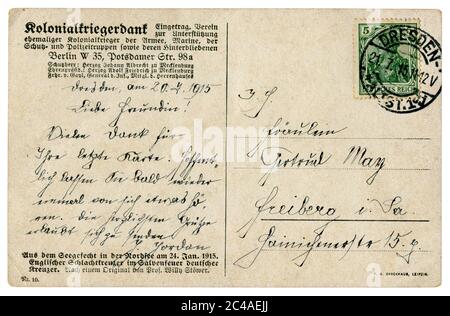 Kolonialkriegerdank Eingetrag. Verein
zur Unterstützung
ehemaliger Kolonialkrieger der Armee, Marine, der
Schutz- und Polizeitruppen sowie deren Hinterbliebenen
Berlin W 35, Potsdamer Str. 98a
Schutzherr: Herzog Johann Albrecht zu Mecklenburg
Ehrenpräs.: Herzog Adolf Friedrich zu Mecklenburg
Frhr. v. Gayl, General d. Inf., Mitgl. d. Herrenhauses
Dresden, am 20.7.1915
Liebe Freundin!
Vielen Dank für
Ihre letzte Karte.
lich lassen Sie bald wieder
einmal von sich etwas hö-
ren. Die herzlichsten Grüße
erlaubt sich zu senden
Jordan
Aus dem Seegefecht in der Nordsee am 24. Jan. 1915.
Englischer Schlachtkreuzer im Salvenfeuer deutscher
Kreuzer. Nach einem Original von Prof. Willy Stöwer.
Nr. 10.
5
DEUTSCHES REICH
DRESDEN-
ALTST. 1
Fräulein
Gertrud May
Freiberg i. Sa
Hainichenerstr 15
F. A. BROCKHAUS, LEIPZIG.
alamy
Image ID: 2C4AEJJ
www.alamy.com